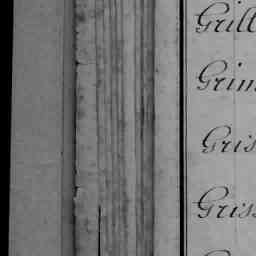 Grill
Grim
Gris
Griss